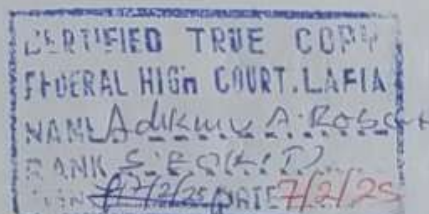 CERTIFIED TRUE COPY
FEDERAL HIGH COURT. LAFIA
NAME Adikwu A. Robert
RANK S.EO(LIT)
SIGN 7/2/25 DATE 7/2/25